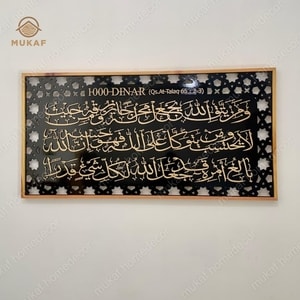 MUKAF
1000 DINAR (Qs.At-Talaq 65 : 2-3)
ومن يتق الله يجعل له مخرجا ويرزقه من حيث
لا يحتسب ومن يتوكل على الله فهو حسبه إن الله
بالغ أمره قد جعل الله لكل شيء قدرا